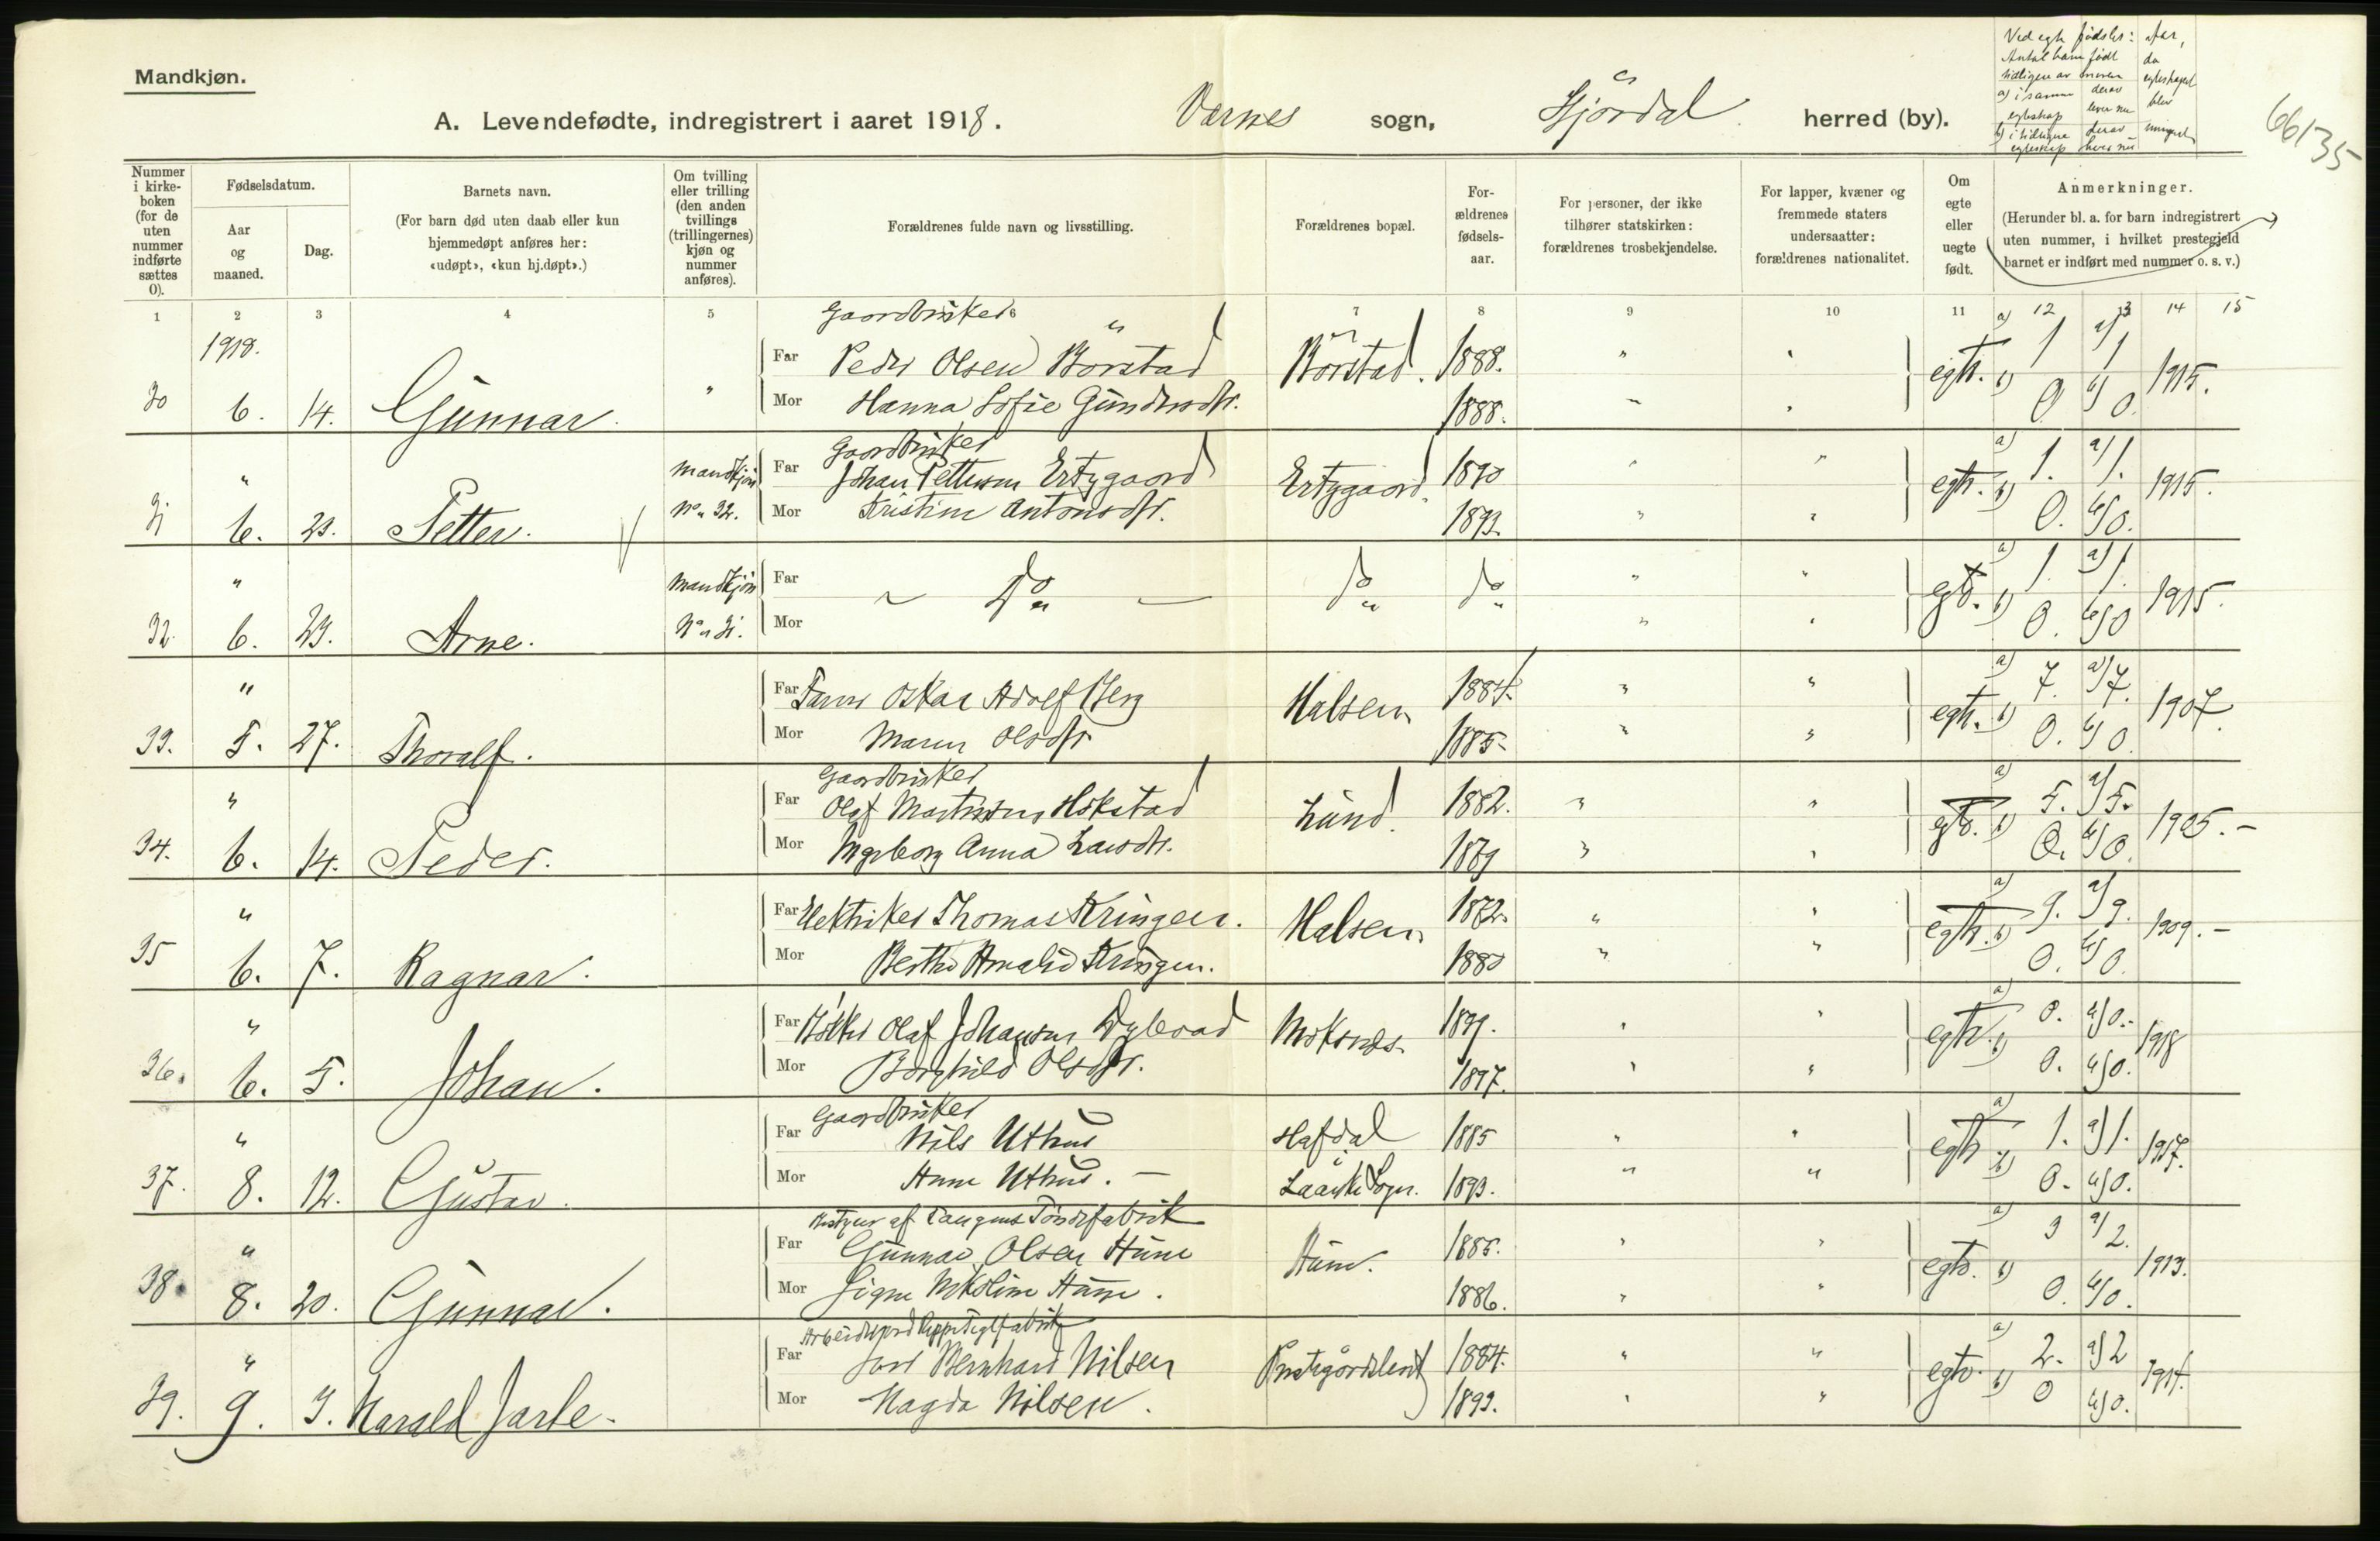 Mandkjøn.
A. Levendefødte, indregistrert i aaret 1918. Værnes sogn, Stjördal herred (by).
Ved egte fødsler: Aar,
Antal barn født da
tidligere av moren egteskapet
a) i samme derav blev
egteskap lever nu
b) i tidligere derav inngaat
egteskap lever nu
66135
Nummer i kirke-boken (for de uten nummer indførte sættes 0).
Fødselsdatum.
Aar og maaned.
Dag.
Barnets navn.
(For barn død uten daab eller kun hjemmedøpt anføres her: «udøpt», «kun hj.døpt».)
Om tvilling eller trilling (den anden tvillings (trillingernes) kjøn og nummer anføres).
Forældrenes fulde navn og livsstilling.
Forældrenes bopæl.
For-ældrenes fødsels-aar.
For personer, der ikke tilhører statskirken: forældrenes trosbekjendelse.
For lapper, kvæner og fremmede staters undersaatter: forældrenes nationalitet.
Om egte eller uegte født.
Anmerkninger.
(Herunder bl. a. for barn indregistrert uten nummer, i hvilket prestegjeld barnet er indført med nummer o. s. v.)
1 2 3 4 5 6 7 8 9 10 11 12 13 14 15
1918.
Gaardbruker
Far Peder Olsen Borstad Börstad. 1888. " " egte. a) 1 a) 1 1915.
30 6. 14. Gunnar. " Mor Hanna Sofie Gundersdtr. 1888. " " b) 0 b) 0.
Gaardbruker
" Mandkjön Far Johan Pettersen Ertzgaard Ertzgaard. 1890 " " egte. a) 1. a) 1. 1915.
31 6. 23. Petter. No 32. Mor Kristine Antonsdtr. 1893. " " b) 0. b) 0.
" Mandkjön Far " Do — do do " " egte. a) 1. a) 1. 1915.
32. 6. 23. Arne. No 31. Mor " " b) 0. b) 0
" Far Oskar Adolf Berg Halsen 1884. " " egte. a) 7. a) 7. 1907.
33. 5. 27. Thoralf. Mor Maren Olsdtr. 1885. " " b) 0. b) 0.
Gaardbruker
" Far Olaf Martinsen Hokstad Lund. 1882. " " egte. a) 5. a) 5. 1905. –
34. 6. 14. Peder. Mor Ingeborg Anna Larsdtr. 1879 " " b) 0. b) 0.
" Far Elektriker Thomas Kringen. Halsen 1872. " " egte. a) 9. a) 9. 1909. –
35 6. 7. Ragnar. Mor Berthe Amalie Kringen. 1880 " " b) 0. b) 0.
" Far Olaf Johansen Dybvad Moksnes. " " egte. a) 0. a) 0. 1918
36. 6. 5. Johan. Mor Borghild Olsdtr. 1897. " " b) 0. b) 0.
Gaardbruker
" Far Nils Uthus Hafdal 1885 " " egte. a) 1. a) 1. 1917.
37. 8. 12. Gustav. Mor Anne Uthus. – Laanke Sogn. 1893. " " b) 0. b) 0.
Bestyrer af Tangens Töndefabrik
" Far Gunnar Olsen Hune Hune. 1885. " " egte. a) 3 a) 2. 1913.
38. 8. 20. Gunnar. Mor Signe Nikoline Hune. 1886. " " b) 0. b) 0.
" Far Bernhard Nilsen 1884. " " egte. a) 2. a) 2 1914.
39. 9. 3. Harald Jarle. Mor Magda Nilsen. 1893. " " b) 0 b) 0.